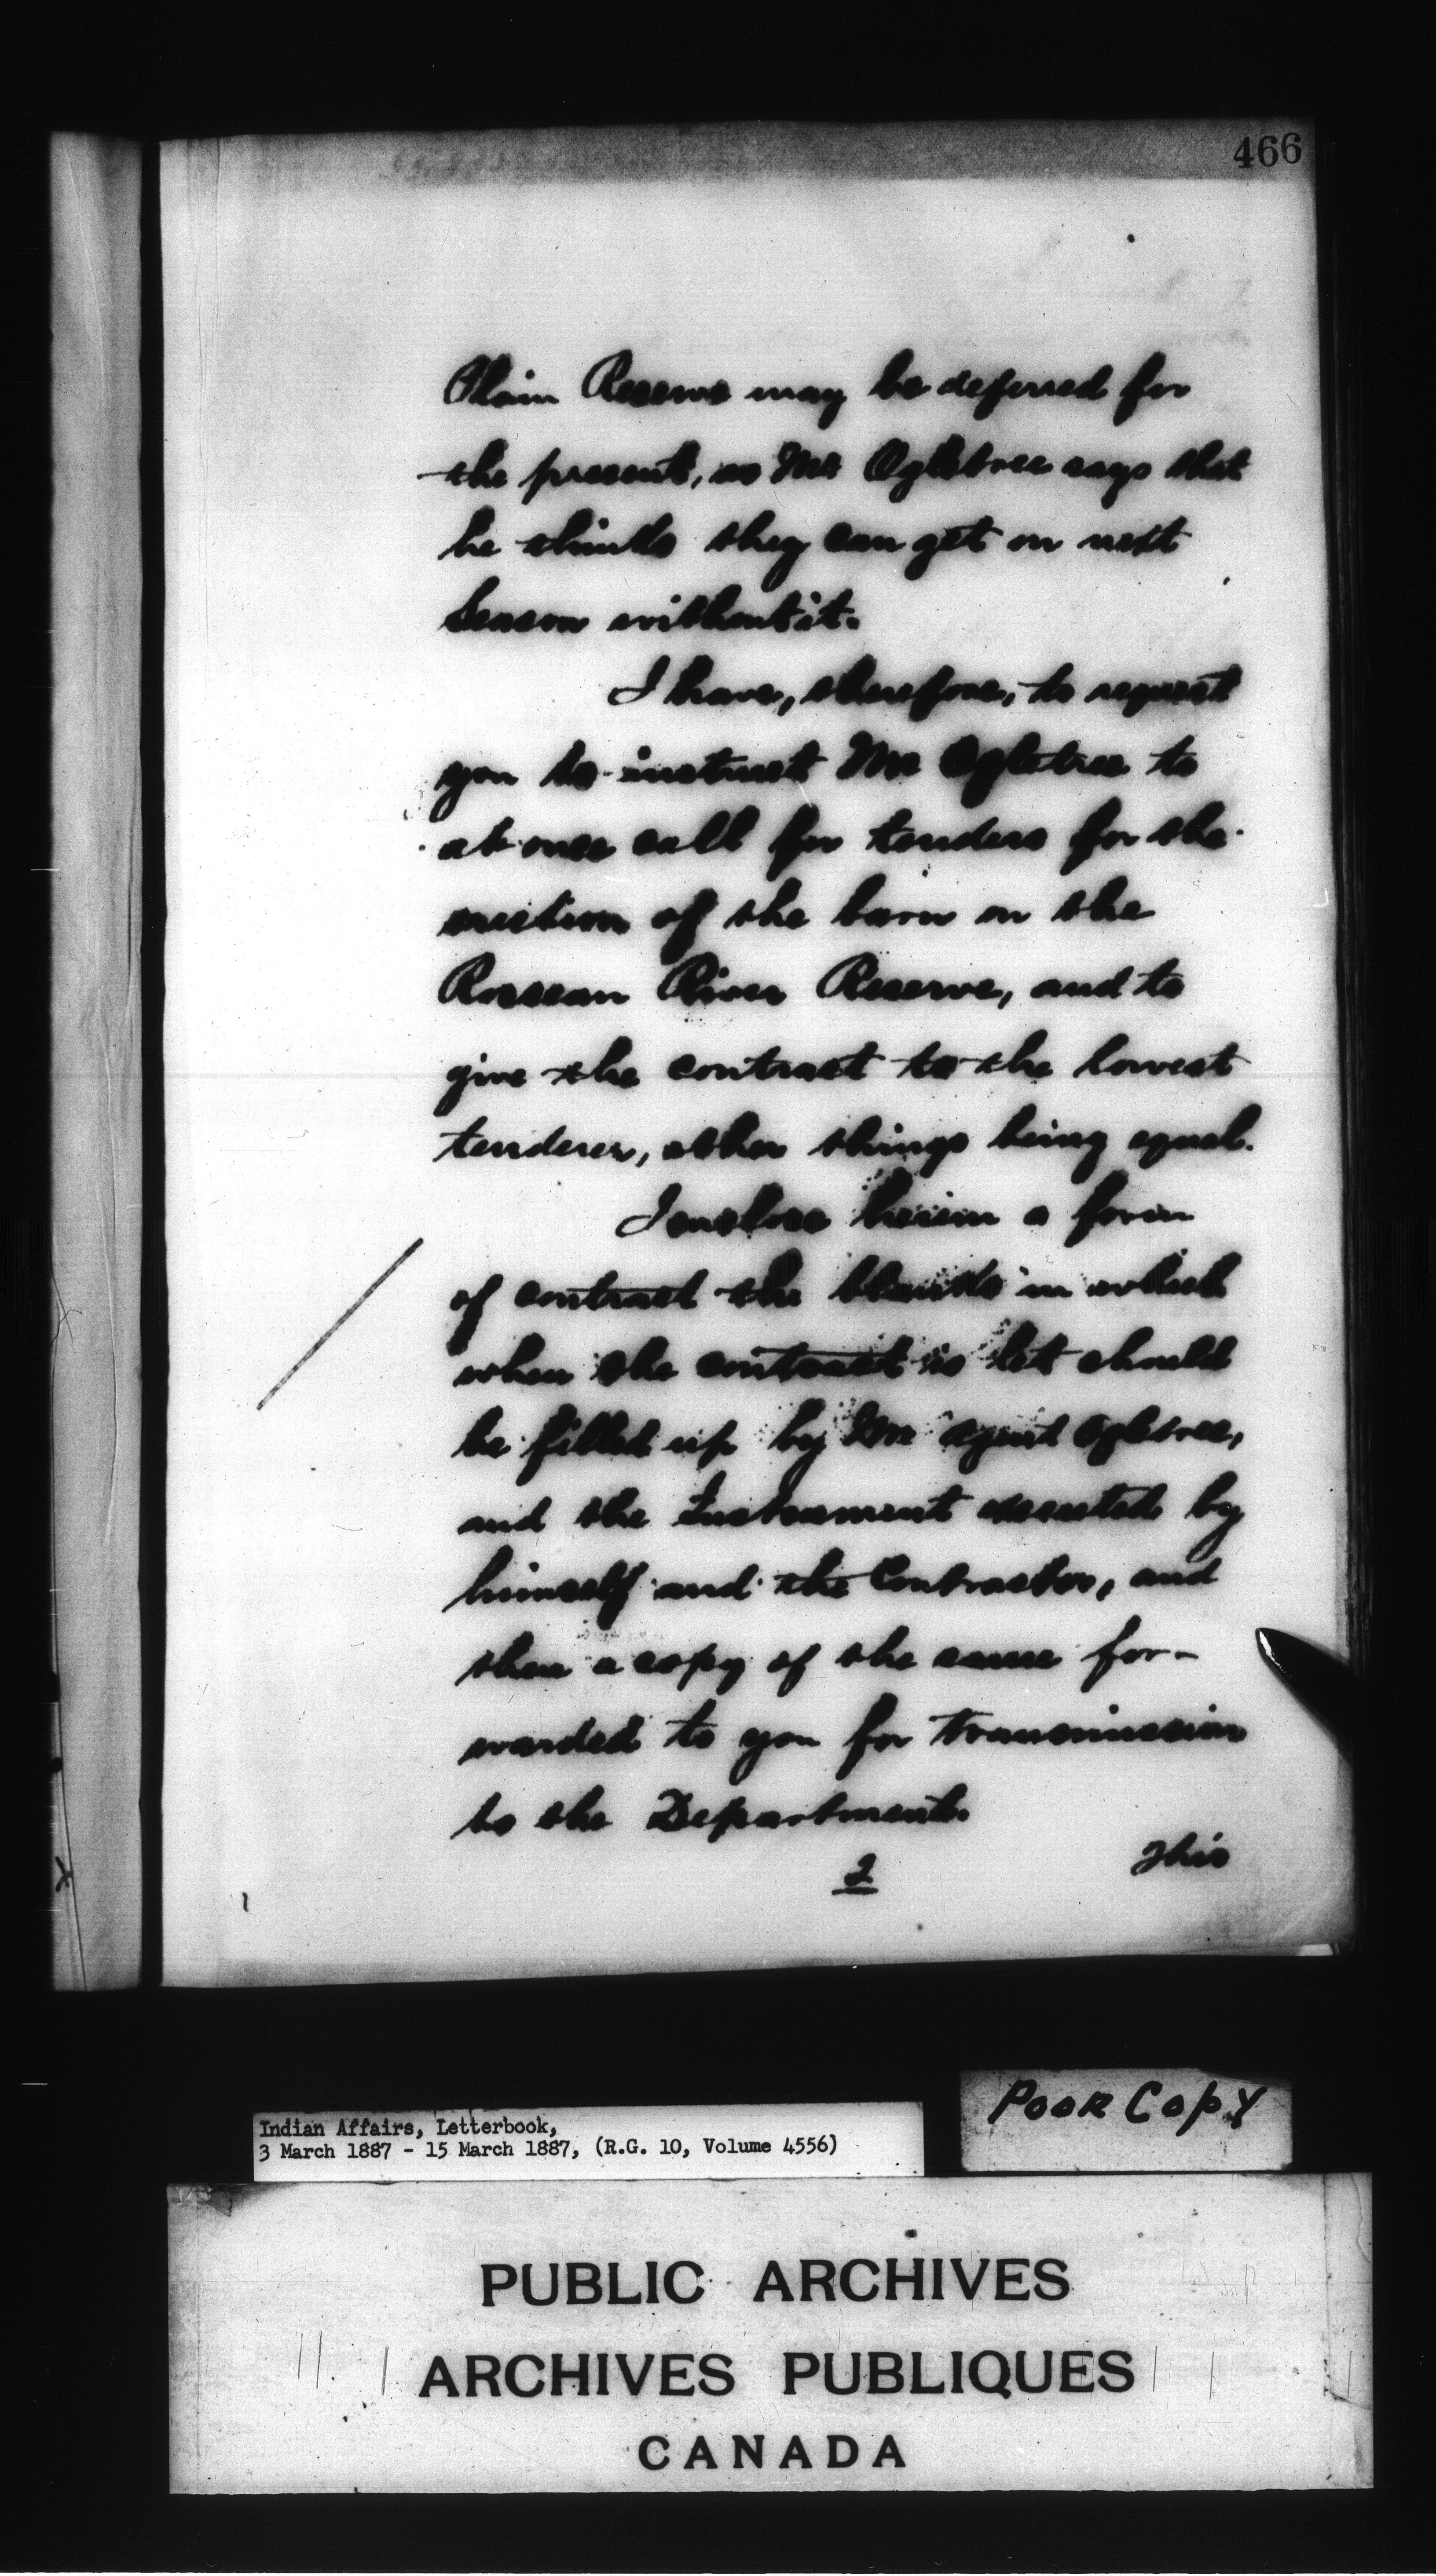 466
Plain Reserve may be deferred for
the present, as Mr Ogletree says that
he thinks they can get on next
Season without it.
I have, therefore, to request
you to instruct Mr Ogletree to
at once call for tenders for the
erection of the barn on the
Rosseau River Reserve, and to
give the contract to the lowest
tenderer, other things being equal.
I enclose herein a form
of contract the blanks in which
when the contract is let should
be filled up by Mr Agent Ogletree,
and the Instrument executed by
himself and the Contractor, and
then a copy of the same for-
warded to you for transmission
to the Department.
2
This
POOR COPY
Indian Affairs, Letterbook,
3 March 1887 - 15 March 1887, (R.G. 10, Volume 4556)
PUBLIC ARCHIVES
ARCHIVES PUBLIQUES
CANADA